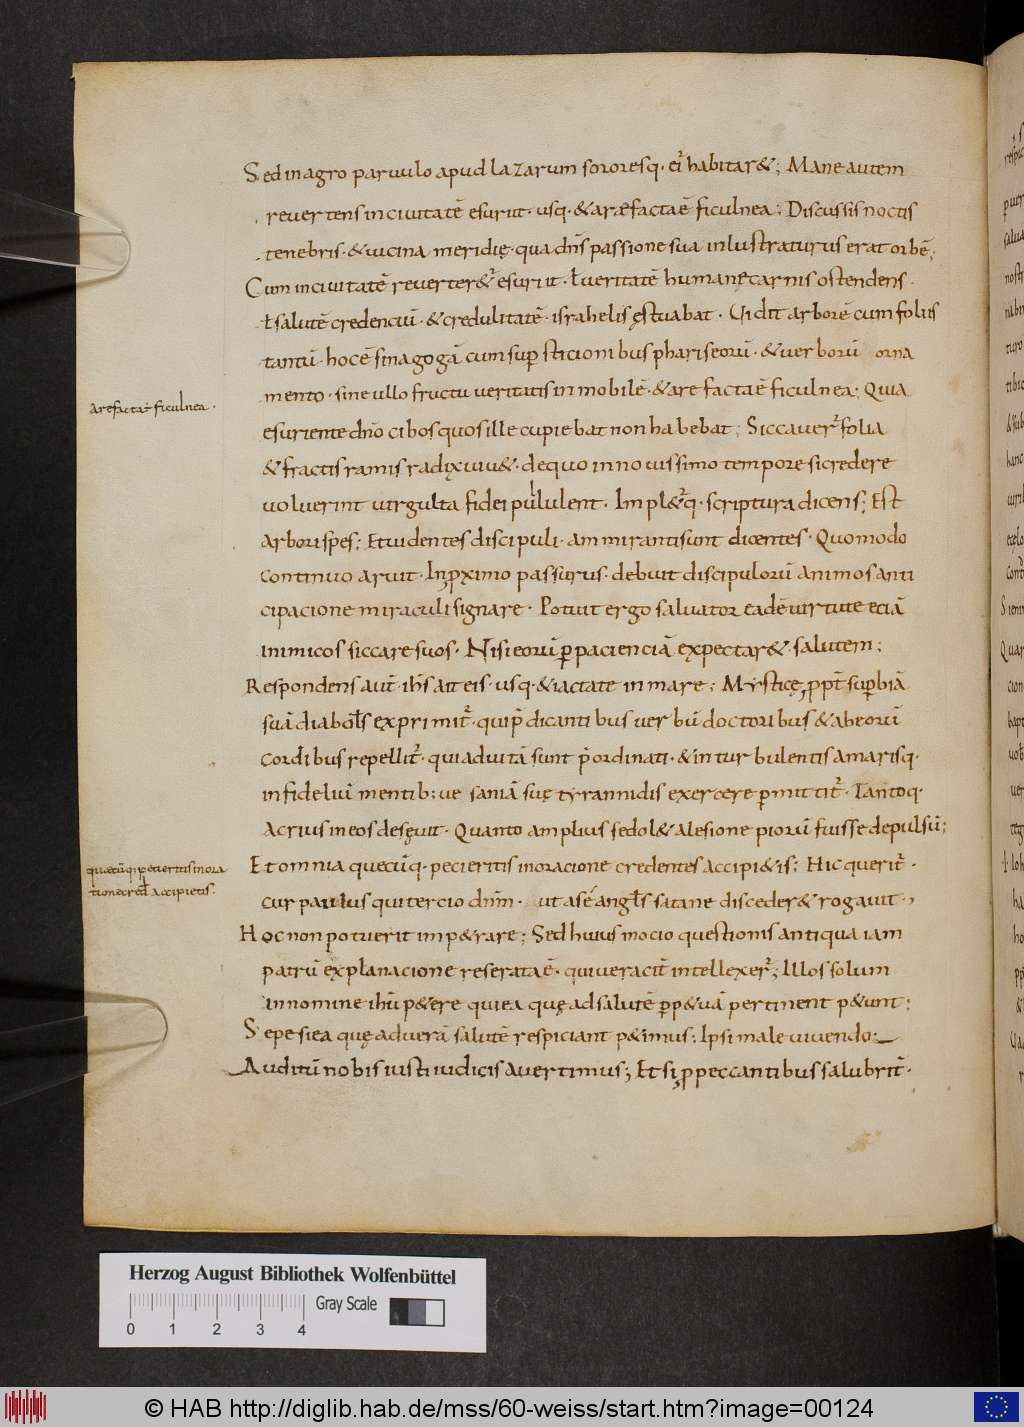 Sed in agro paruulo apud lazarum sororesq· ei᷒ habitar&; Mane autem
reuertens in ciuitatē esuriit· usq· & aræfacta ē ficulnea; Discussis noctis
tenebris· & uicina meridię· qua dn̄s passione sua inlustraturus erat orbē;
Cum in ciuitatē reuerter&᷒ esuriit· ł ueritatē humanę carnis ostendens·
ł salutē credenciū· & credulitatē· israhelis ęstuabat· Uidit arborē cum foliis
tantū· hoc ē sinagogā cum sup̱sticionibus phariseorū· & uerborū orna
mento· sine ullo fructu ueritatis inmobilē· & arefacta ē ficulnea; Quia
arefacta ē ficulnea·
esuriente dn̄o cibos quos ille cupiebat non habebat; Siccauer᷒ folia
& fractis ramis radix uiu&· de quo in nouissimo tempore si credere
uoluerint uirgulta fidei pullulent· Impl&᷒q· scriptura dicens; Est
arbori spes; Et uidentes discipuli· ammirantisunt dicentes· Quomodo
continuo aruit· In ꝓximo passurus· debuit discipulorū animos anti
cipacione miraculi signare· Potuit ergo saluator eadē uirtute eciā
inimicos siccare suos· Nisi eorū ꝑ pacienciā expectar&· salutem;
Respondens aut̄ ih̄s ait eis· usq· & iactate in mare; Mysticę ꝓpt̄ suꝑbiā
suā diabol̄s exprimit᷒· qui p̄dicantibus uerbū doctoribus & ab eorū
cordibus repellit᷒· qui ad uitā sunt p̄ordinati· & in turbulentis amarisq·
infideliū mentib: ue saniā suę tyrannidis exercere ꝑmittit᷒· Tantoq·
acrius in eos desęuit· Quanto amplius se dol& a lesione piorū fuisse depulsū;
Et omnia quecūq· pecieritis in oracione credentes accipi&is; Hic querit᷒·
quæcūq· pecieritis in ora
tione cred̄ accipietis·
cur paulus qui tercio dn̄m· ut a sé angl̄s satane disceder& rogauit·,
Hoc non potuerit imp&rare; Sed huius mocio questionis antiqua iam
patrū explanacione reserata ē· qui ueracit̄ intellexer᷒; Illos solum
in nomine ih̄u p&ere qui ea quę ad salutē ꝑp&uā pertinent p&unt;
Sepe si ea quę ad uerā salutē respiciant p&imus; Ipsi male uiuendo;
Auditū nobis iusti iudicis auertimus; Et si, ꝓ peccantibus salubrit̄·
Herzog August Bibliothek Wolfenbüttel
Gray Scale
0 1 2 3 4
© HAB http://diglib.hab.de/mss/60-weiss/start.htm?image=00124